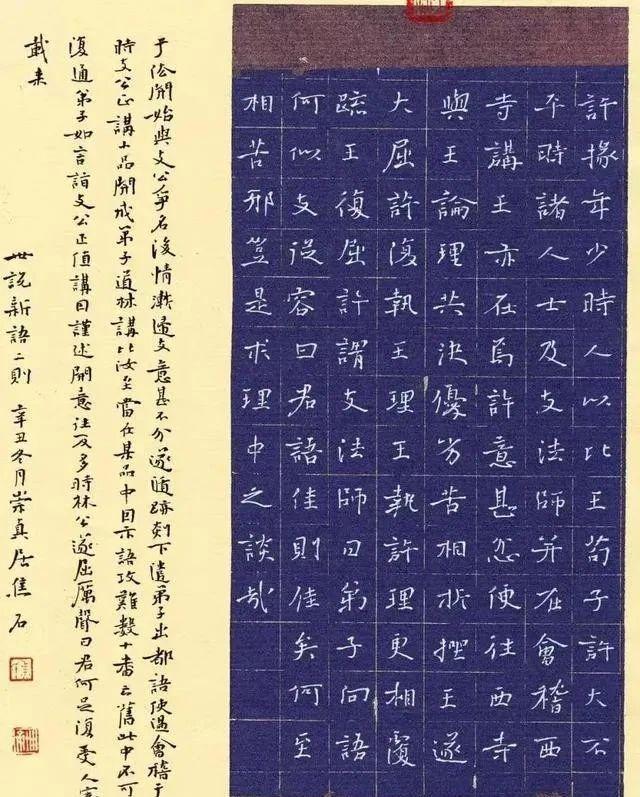 許掾年少時人以比王苟子許大不
平時諸人士及支法師并在會稽西
寺講王亦在焉許意甚忿便往西寺
與王論理共決優劣苦相折挫王遂
大屈許復執王理王執許理更相覆
疏王復屈許謂支法師曰弟子向語
何似支從容曰君語佳則佳矣何至
相苦邪豈是求理中之談哉
于法開始與支公爭名後情漸歸支意甚不分遂遁跡剡下遣弟子出都語使過會稽于
時支公正講小品開戒弟子道林講比汝至當在某品中因示語攻難數十番云舊此中不可
復通弟子如言詣支公正值講因謹述開意往反多時林公遂屈厲聲曰君何足復受人寄
載來
世說新語二則 辛丑冬月崇真居焦石